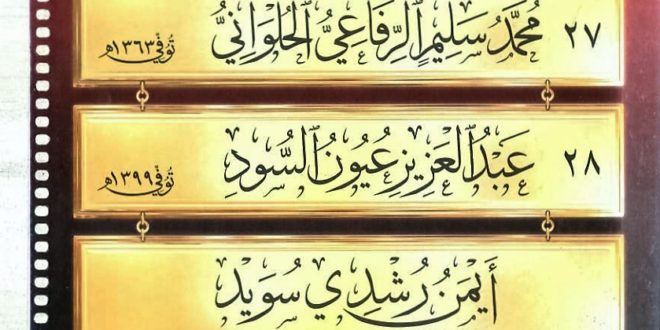 ٢٧ مُحَمَّدُ سَلِيمٍ ٱلرِّفَاعِيُّ ٱلْحُلْوَانِيُّ تُوُفِّيَ ١٣٦٣هـ
٢٨ عَبْدُ ٱلْعَزِيزِ عُيُونُ ٱلسُّودِ تُوُفِّيَ ١٣٩٩هـ
أَيْمَنُ رُشْدِي سُوَيْد